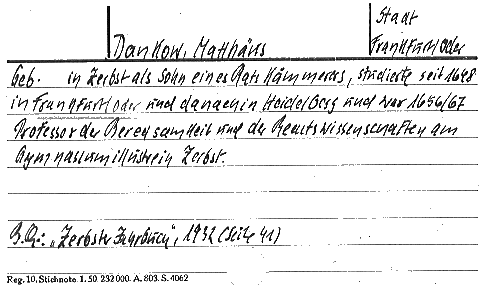 Stadt
Dankow, Matthäus Frankfurt Oder
Geb. in Zerbst als Sohn eines Rats Kämmerers, studierte seit 1648
in Frankfurt Oder und danach in Heidelberg und war 1656/67
Professor der Beredsamheit und der Rechtswissenschaften am
Gymnasium illustre in Zerbst.
B.Q.: „Zerbster Jahrbuch", 1932 (Seite 41)
Reg. 10, Stichnote. 1. 50 232 000. A. 803. S. 4062